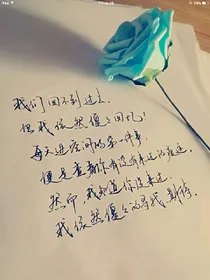 我们回不到过去.
但我依然傻傻回忆!
每天进空间的第一件事.
便是查看你有没有来过的痕迹.
然而,我知道你没来过.
我依然傻傻的寻找,期待.